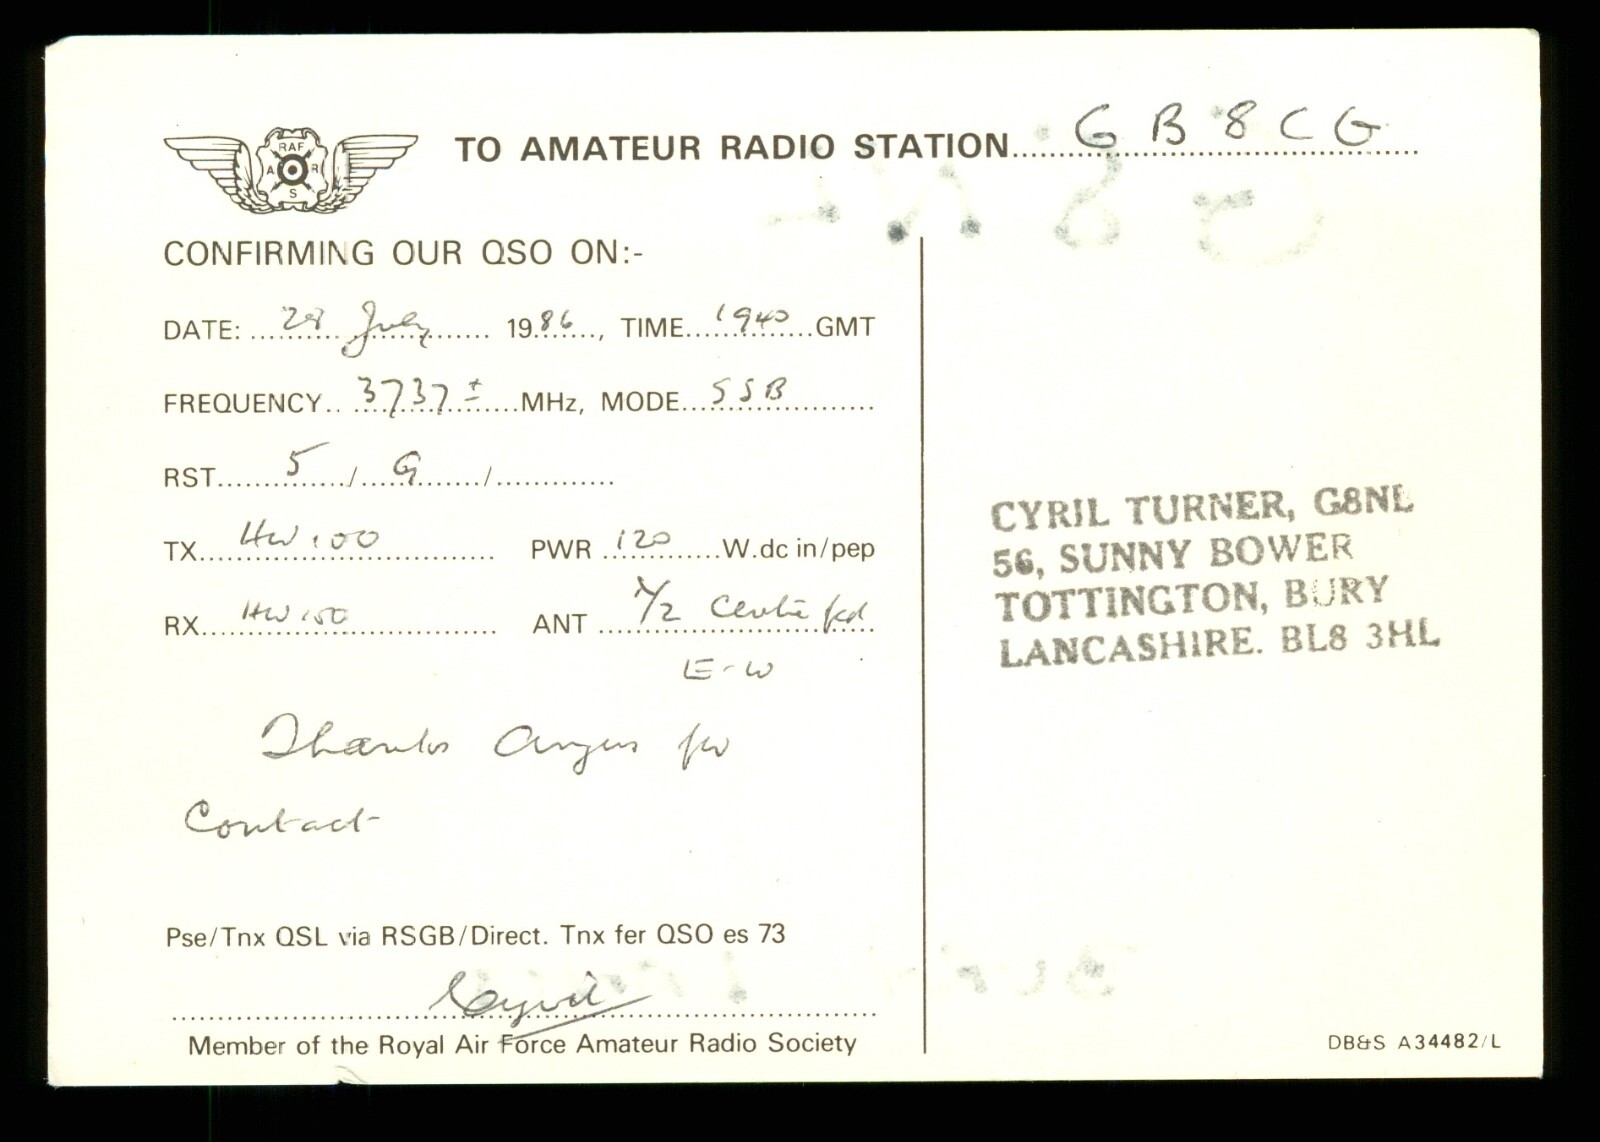 RAF
A R
S
TO AMATEUR RADIO STATION GB8CG
CONFIRMING OUR QSO ON:-
DATE: 28 July 1986, TIME 1940 GMT
FREQUENCY 3737 ± MHz, MODE SSB
RST 5 / 9 /
TX HW 100 PWR 120 W.dc in/pep
RX HW 100 ANT λ/2 Centre fed
E-W
Thanks Angus for
Contact
Pse/Tnx QSL via RSGB/Direct. Tnx fer QSO es 73
Cyril
Member of the Royal Air Force Amateur Radio Society
CYRIL TURNER, G8NL
56, SUNNY BOWER
TOTTINGTON, BURY
LANCASHIRE. BL8 3HL
DB&S A34482/L